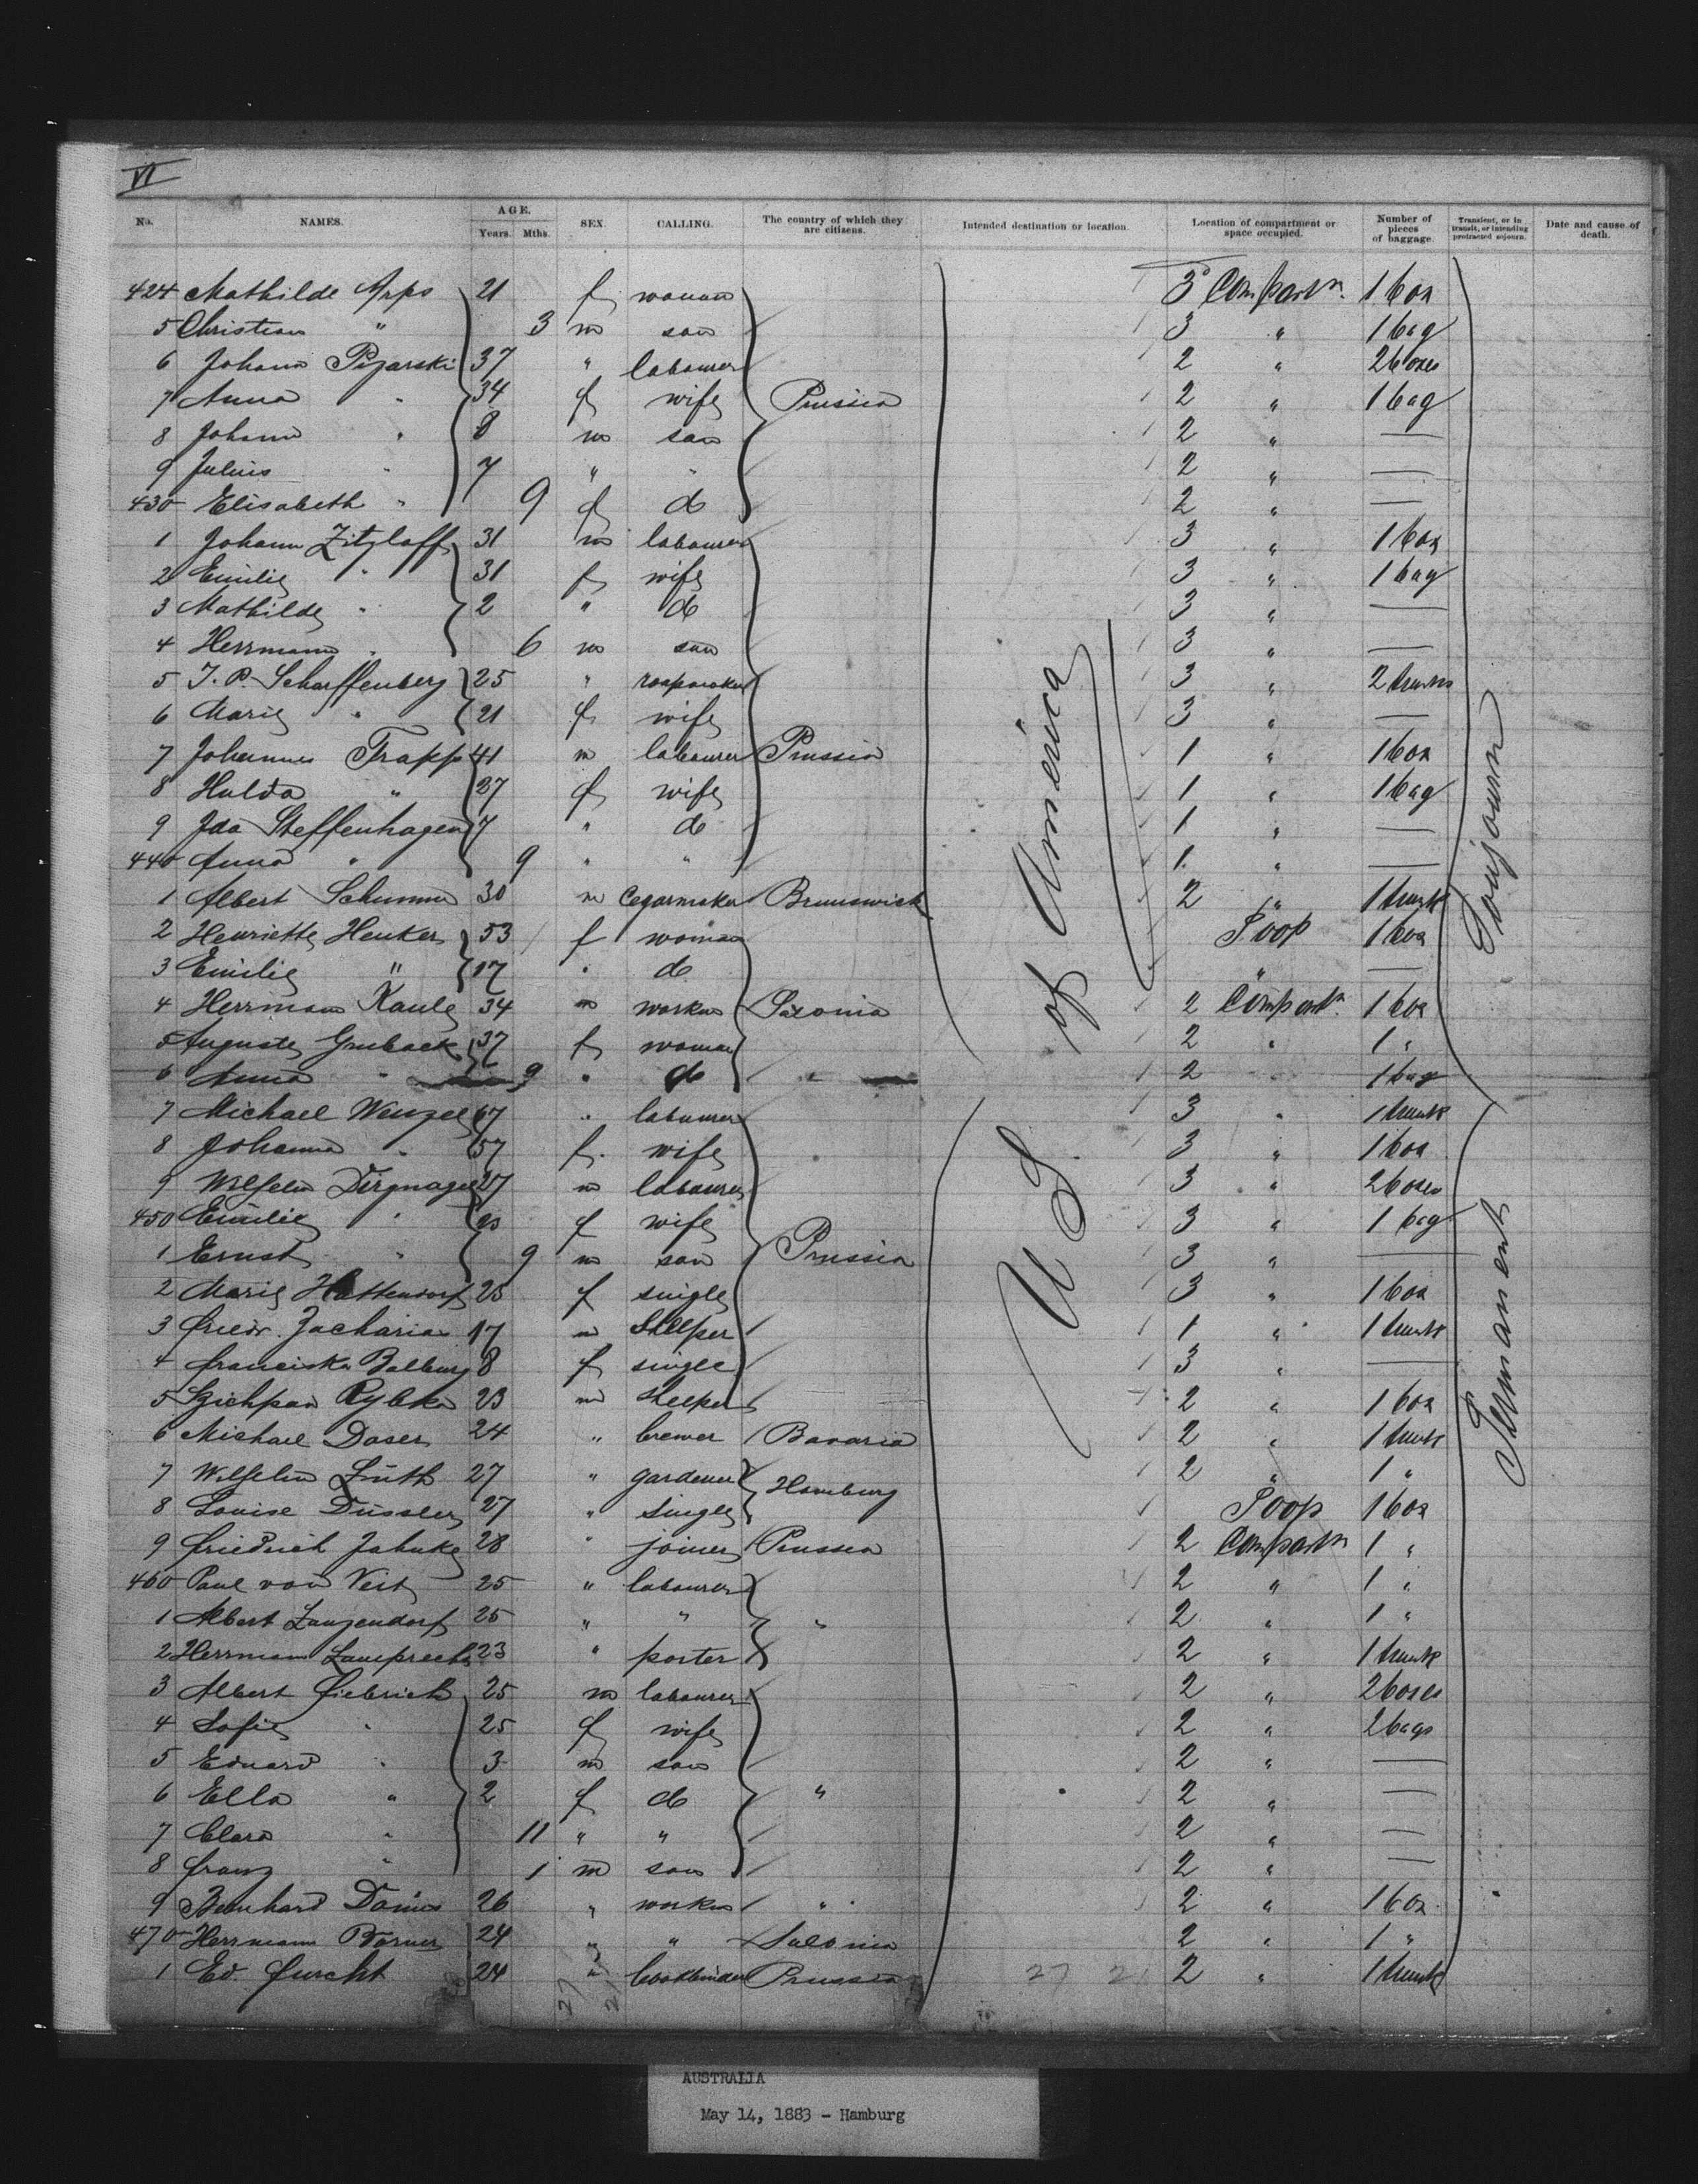 VI
No. NAMES. AGE. Years. Mths. SEX. CALLING. The country of which they are citizens. Intended destination or location. Location of compartment or space occupied. Number of pieces of baggage. Transient, or in transit, or intending protracted sojourn. Date and cause of death.
424 Mathilde Arps 21 f woman 3 Compartm. 1 box
5 Christian " 3 m son 3 " 1 bag
6 Johann Pijarski 37 " labourer 2 " 2 boxes
7 Anna " 34 f wife Prussia 2 " 1 bag
8 Johann " 8 m son 2 " —
9 Julius " 7 " " 2 " —
430 Elisabeth " 9 f do 2 " —
1 Johann Zitzlaff 31 m labourer 3 " 1 box
2 Emilie " 31 f wife 3 " 1 bag
3 Mathilde " 2 " do 3 " —
4 Herrmann " 6 m son 3 " —
5 J. P. Scharffenberg 25 " 3 " 2 trunks
6 Marie " 21 f wife 3 " —
7 Johannes Trapp 41 m labourer Prussia 1 " 1 box
8 Hulda " 37 f wife 1 " 1 bag
9 Ida Steffenhagen 7 " do 1 " —
440 Anna " 9 " " 1 " —
1 Albert Schumm 30 m Cegarmaker Brunswick 2 " 1 trunk
2 Henriette Henker 53 f woman Poop 1 box
3 Emilie " 17 " do " —
4 Herrmann Kaule 34 m worker Saxonia 2 Compartm. 1 box
5 Auguste Gruback 37 f woman 2 " 1 "
6 Anna " 9 " do " 2 " 1 bag
7 Michael Wenzel 67 " labourer 3 " 1 trunk
8 Johanna " 57 f. wife 3 " 1 box
9 Wilhelm 27 m labourer 3 " 2 boxes
450 Emilie " f wife 3 " 1 bag
1 Ernst " 9 m son Prussia 3 " —
2 Marie Hattendorf 25 f single 3 " 1 box
3 Friedr. Zacharias 17 m Shepper 1 " 1 trunk
4 Franciska Balburg 8 f single 3 " —
5 Rybka 23 m 2 " 1 box
6 Michael Daser 24 " brewer Bavaria 2 " 1 trunk
7 Wilhelm Lüth 27 " gardener Hamburg 2 " 1 "
8 Louise Düssler 27 " single Poop 1 box
9 Friedrich Jahnke 28 " joiner Prussia 2 Compartm 1 "
460 Paul von Veit 25 " labourer 2 " 1 "
1 Albert Langendorf 25 " " " 2 " 1 "
2 Herrmann Lamprecht 23 " porter 2 " 1 trunk
3 Albert Fiebrich 25 m labourer 2 " 2 boxes
4 Sofie " 25 f wife 2 " 2 bags
5 Eduard " 3 m son 2 " —
6 Ella " 2 f do " 2 " —
7 Clara " 11 " " 2 " —
8 Franz " 1 m son 2 " —
9 Bernhard Danies 26 " worker " 2 " 1 box
470 Herrmann Börner 24 " " Saxonia 2 " 1 "
1 Ed. Furcht 24 " bookbinder Prussia 2 " 1 trunk
U S of America
Permanent Soujourn
27 21
27 21
AUSTRALIA
May 14, 1883 - Hamburg